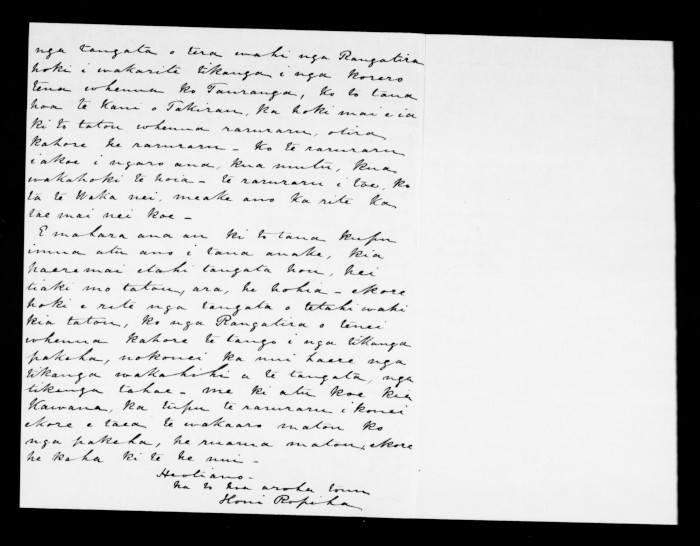 nga tangata o tera wahi nga Rangatira
hoki i wakarite tikanga i nga korero
tena whenua ko Tauranga, Ko to taua
hoa te Kani o Takirau, ka hoki mai e ia
ki to tatou whenua raruraru, otira
kahore he raruraru - Ko te raruraru
i a koe i ngaro ana, kua mutu, kua
wakahoki te hoia - te raruraru i toe, ko
ta te Waka nei, meake ano ka rite ka
tae mai nei koe -
E mahara ana au ki to taua kupu
imua atu ano i taua anake, kia
haeremai etahi tangata hou, hei
tiaki mo tatou, ara, he hohia - ekore
hoki e rite nga tangata o tetahi wahi
kia tatou, ko nga Rangatira o tenei
whenua kahore te tango i nga tikanga
pakeha, nokonei ka nui haere nga
tikanga wakahihi a te tangata, nga
tikanga tahae - me ki atu koe kia
Kawana, ka tupu te raruraru ikonei
ekore e taea te wakaaro matou ko
nga pakeha, he ruarua matou, ekore
he kaha ki te he nui -
Heotiano -
Na to hoa aroha
Honi Ropiha